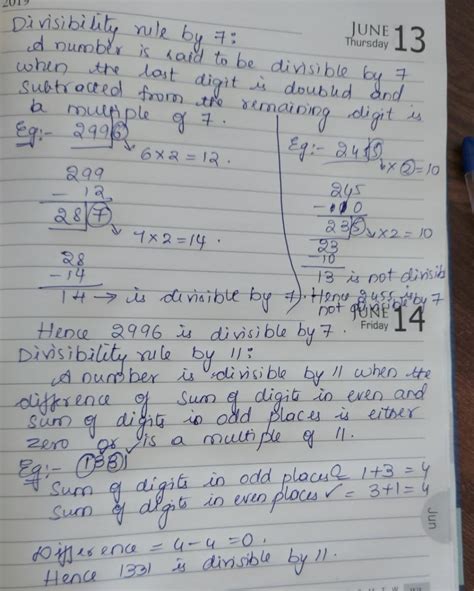 2019
JUNE 13
Thursday
Divisibility rule by 7:
A number is said to be divisible by 7
when the last digit is doubled and
subtracted from the remaining digit is
a multiple of 7.
Eg:- 2996
6×2=12.
299
- 12
287
7×2=14.
28
-14
14 → is divisible by 7.
Hence 2996 is divisible by 7.
Eg:- 2455
5×2=10
245
-10
235
5×2=10
23
-10
13 is not divisib
Hence 2455 is
not divisible by 7
JUNE 14
Friday
Divisibility rule by 11:
A number is divisible by 11 when the
difference of sum of digits in even and
sum of digits in odd places is either
zero or is a multiple of 11.
Eg:- 1331
Sum of digits in odd places = 1+3=4
Sum of digits in even places = 3+1=4
Difference = 4-4=0.
Hence 1331 is divisible by 11.
Jun